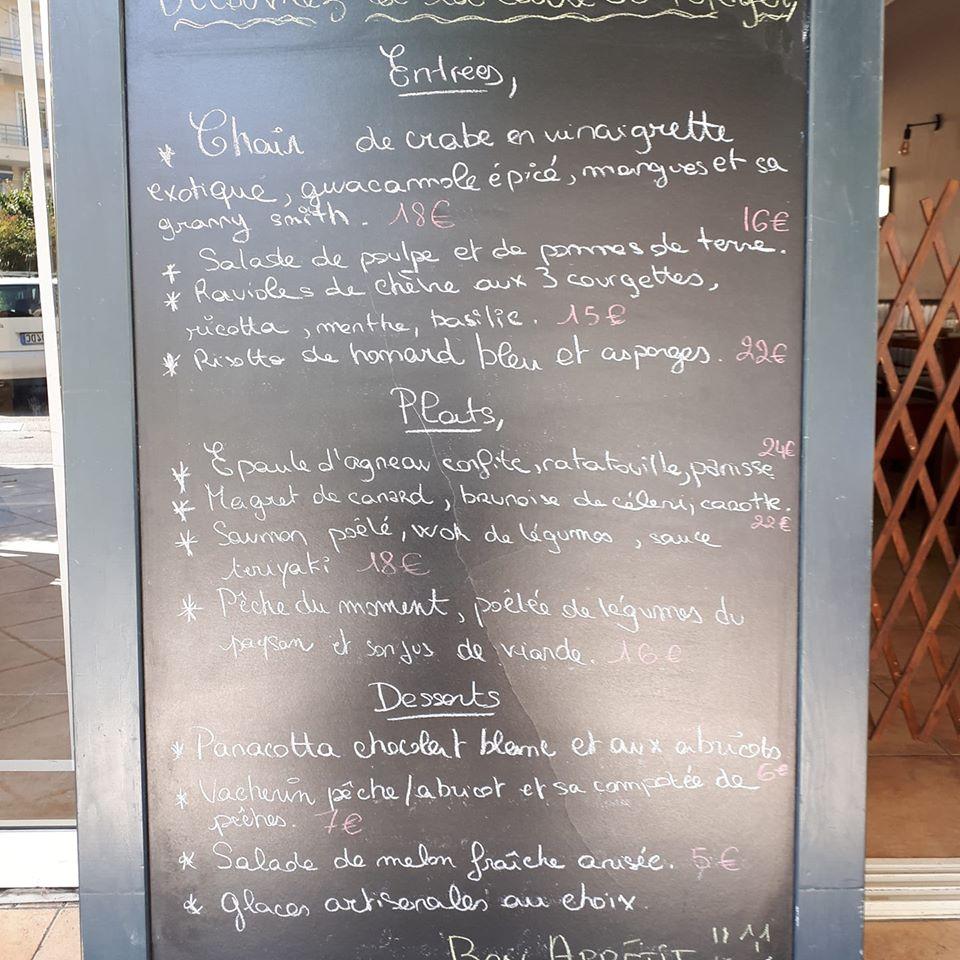 Découvrez
Entrées,
* Chair de crabe en vinaigrette
exotique, guacamole épicé, mangues et sa
granny smith. 18€
16€
* Salade de poulpe et de pommes de terre.
* Ravioles de chèvre aux 3 courgettes,
ricotta, menthe, basilic. 15€
* Risotto de homard bleu et asperges. 22€
Plats,
24€
* Epaule d'agneau confite, ratatouille, panisse
* Magret de canard, brunoise de céleri, carotte.
22€
* Saumon poêlé, wok de légumes, sauce
teriyaki 18€
* Pêche du moment, poêlée de légumes du
paysan et son jus de viande. 16€
Desserts
* Panacotta chocolat blanc et aux abricots
6€
* Vacherin pêche/abricot et sa compotée de
pêches. 7€
* Salade de melon fraîche anisée. 5€
* glaces artisanales au choix.
BON APPÉTIT !!